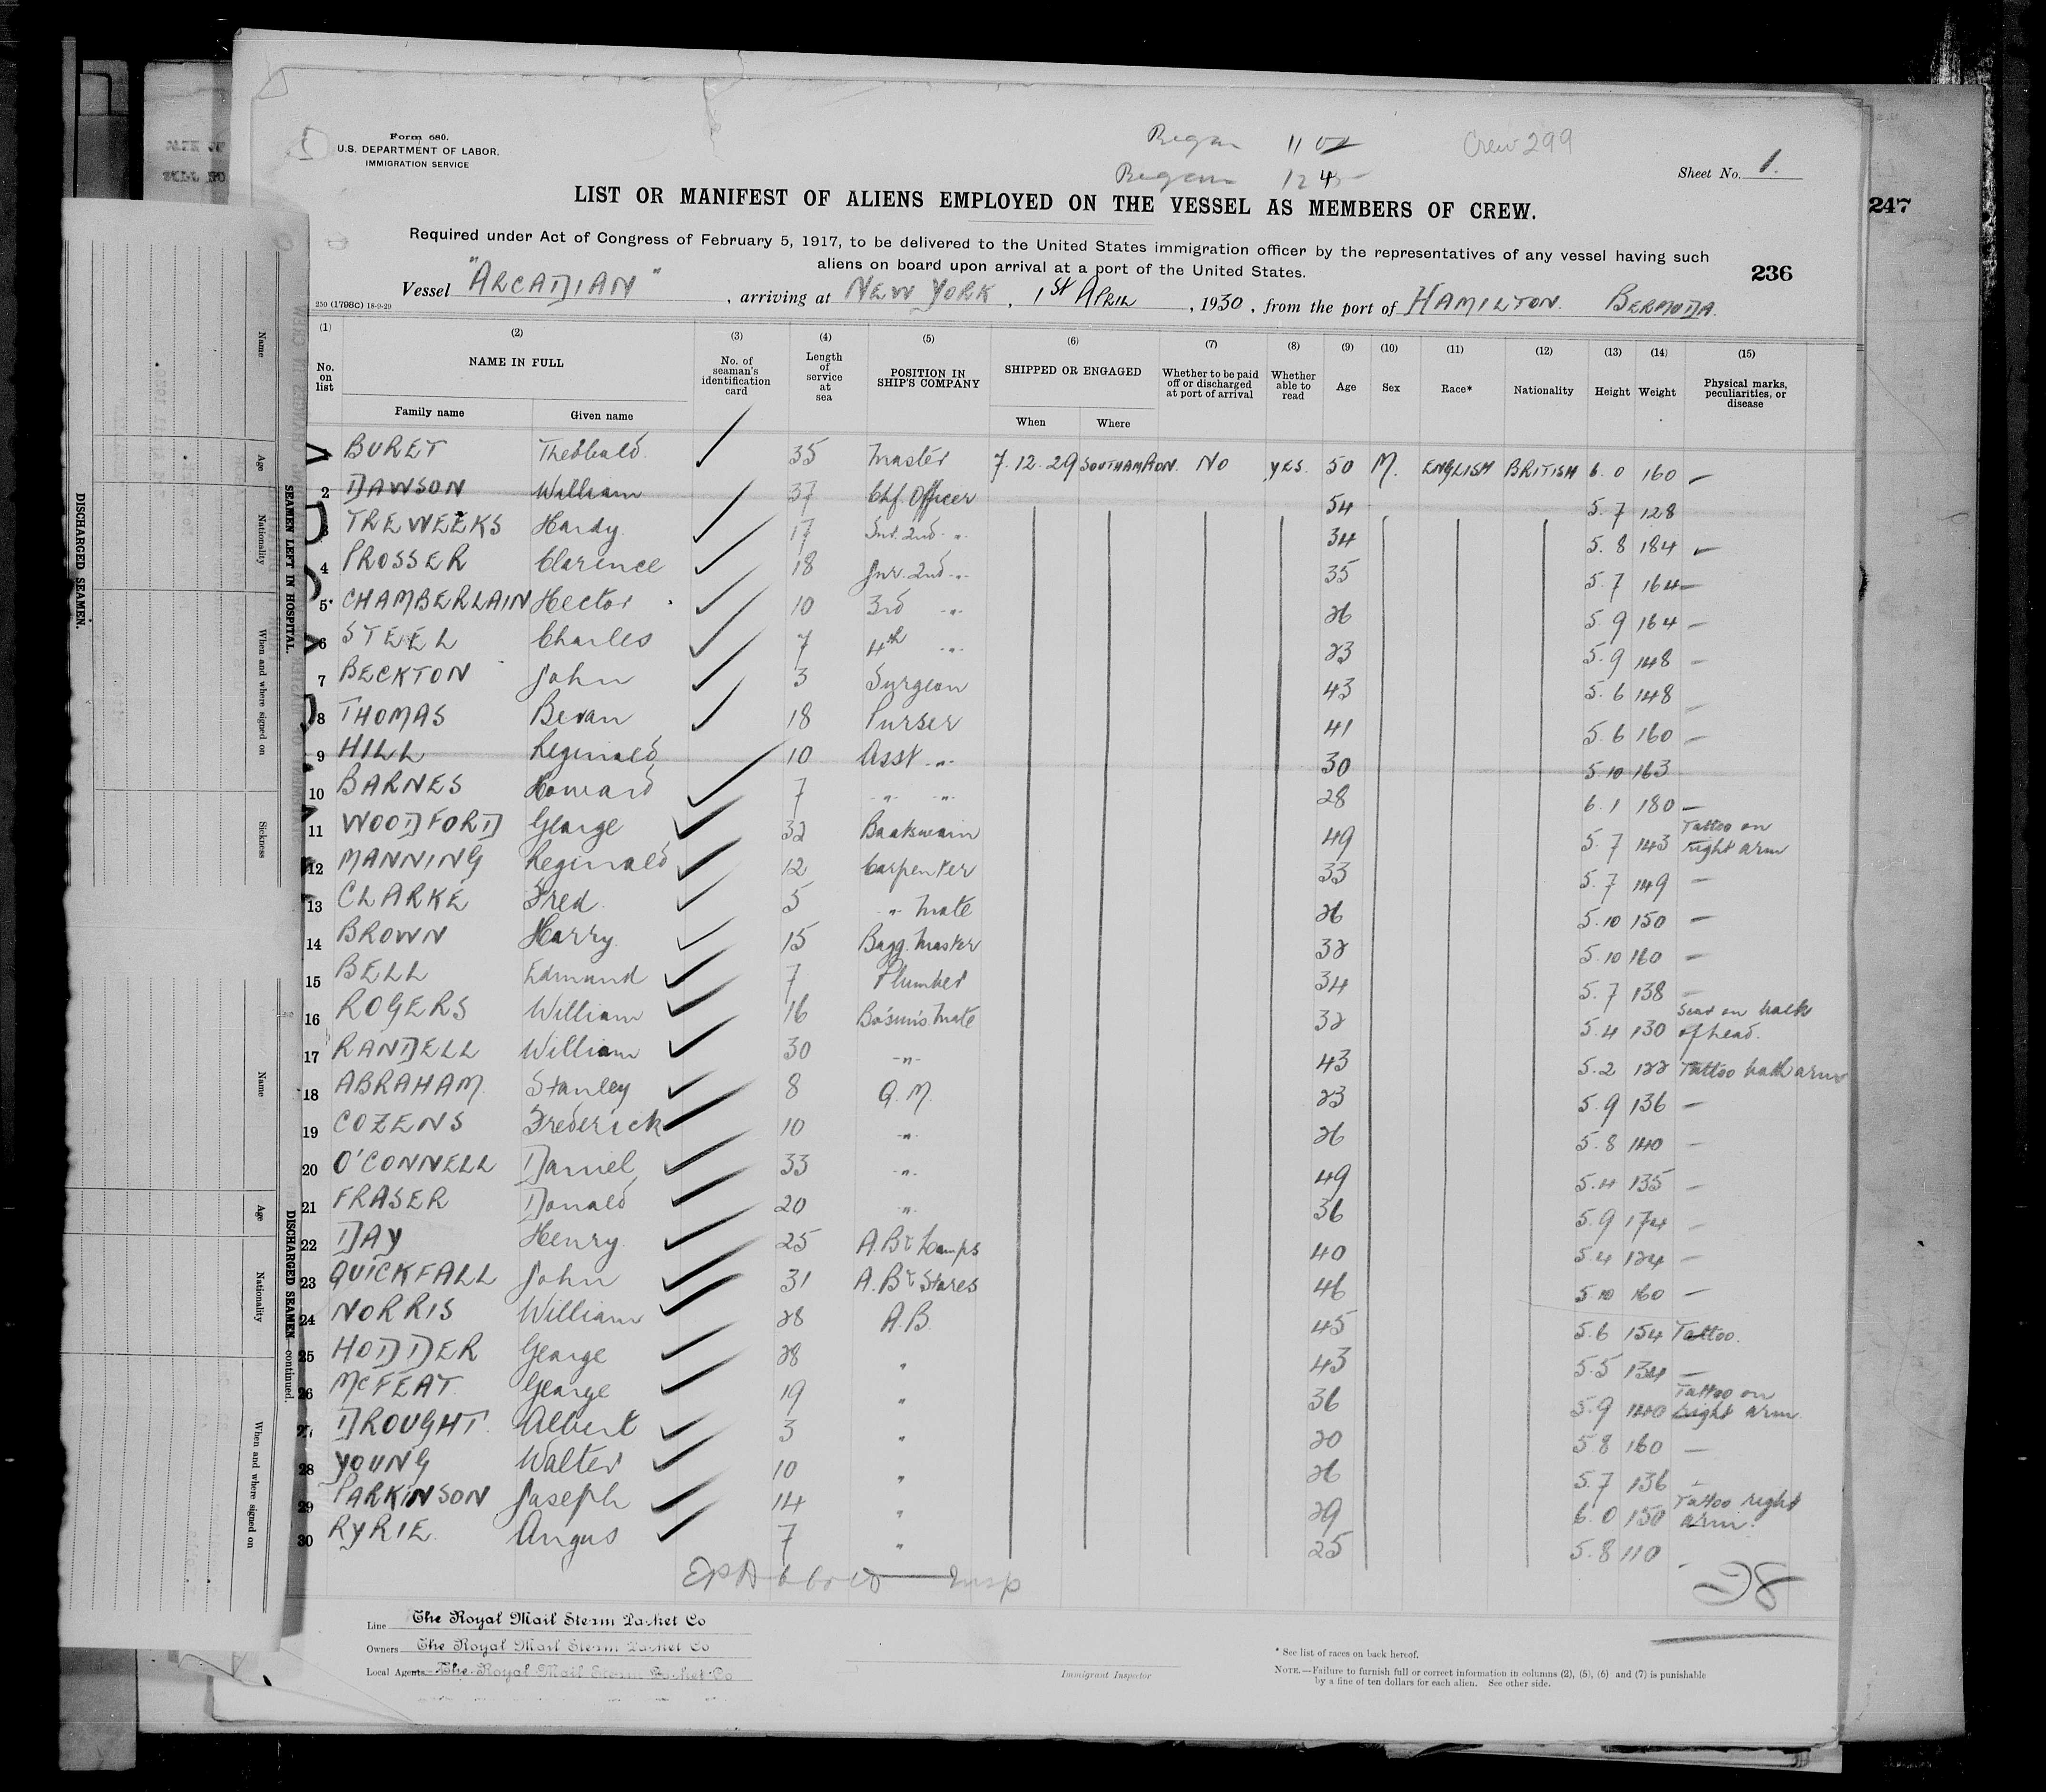 Form 680.
U.S. DEPARTMENT OF LABOR.
IMMIGRATION SERVICE
Began
Crew 299
Began 12 45
Sheet No. 1.
LIST OR MANIFEST OF ALIENS EMPLOYED ON THE VESSEL AS MEMBERS OF CREW.
247
Required under Act of Congress of February 5, 1917, to be delivered to the United States immigration officer by the representatives of any vessel having such
aliens on board upon arrival at a port of the United States.
236
Vessel "ARCADIAN", arriving at NEW YORK, 1st APRIL, 1930, from the port of HAMILTON. BERMUDA.
250 (1798c) 18-9-29
(1) (2) (3) (4) (5) (6) (7) (8) (9) (10) (11) (12) (13) (14) (15)
No. on list NAME IN FULL No. of seaman's identification card Length of service at sea POSITION IN SHIP'S COMPANY SHIPPED OR ENGAGED Whether to be paid off or discharged at port of arrival Whether able to read Age Sex Race* Nationality Height Weight Physical marks, peculiarities, or disease
Family name Given name When Where
BURET Theobald. 35 Master 7.12.29 SOUTHAMPTON. NO YES. 50 M. ENGLISH BRITISH 6.0 160 —
2 DAWSON William 37 Chf. Officer 54 5.7 128
3 TREWEEKS Hardy 17 Snr. 2nd " 34 5.8 184 —
4 PROSSER Clarence 18 Jnr. 2nd " 35 5.7 164 —
5 CHAMBERLAIN Hector 10 3rd " 26 5.9 164 —
6 STEEL Charles 7 4th " 23 5.9 148 —
7 BECKTON John 3 Surgeon 43 5.6 148 —
8 THOMAS Bevan 18 Purser 41 5.6 160 —
9 HILL Reginald 10 Asst " 30 5.10 163
10 BARNES Howard 7 " " 28 6.1 180 —
11 WOODFORD George 32 Boatswain 49 5.7 143 Tattoo on right arm
12 MANNING Reginald 12 Carpenter 33 5.7 149 —
13 CLARKE Fred. 5 " Mate 26 5.10 150 —
14 BROWN Harry. 15 Bagg. Master 32 5.10 160 —
15 BELL Edmund 7 Plumber 34 5.7 138 —
16 ROGERS William 16 Bo'sun's Mate 32 5.4 130 Scar on back of head.
17 RANDELL William 30 " 43 5.2 122 Tattoo both arms
18 ABRAHAM Stanley 8 Q.M. 23 5.9 136 —
19 COZENS Frederick 10 " 26 5.8 140 —
20 O'CONNELL Daniel 33 " 49 5.4 135 —
21 FRASER Donald 20 " 36 5.9 174 —
22 DAY Henry. 25 A.B & Lamps 40 5.4 124 —
23 QUICKFALL John 31 A.B & Stores 46 5.10 160 —
24 NORRIS William 28 A.B. 45 5.6 154 Tattoo.
25 HODDER George 28 " 43 5.5 134 —
26 McFEAT George 19 " 36 5.9 140 Tattoo on right arm
27 DROUGHT Albert 3 " 20 5.8 160 —
28 YOUNG Walter 10 " 26 5.7 136 —
29 PARKINSON Joseph 14 " 29 6.0 150 Tattoo right arm.
30 RYRIE Angus 7 " 25 5.8 110 -
Insp
Line The Royal Mail Steam Packet Co
Owners The Royal Mail Steam Packet Co
Local Agents The Royal Mail Steam Packet Co
Immigrant Inspector
* See list of races on back hereof.
NOTE.—Failure to furnish full or correct information in columns (2), (5), (6) and (7) is punishable
by a fine of ten dollars for each alien. See other side.
DISCHARGED SEAMEN.
SEAMEN LEFT IN HOSPITAL.
Name
Age
Nationality
When and where signed on
Sickness
DISCHARGED SEAMEN—continued.
Name
Age
Nationality
When and where signed on